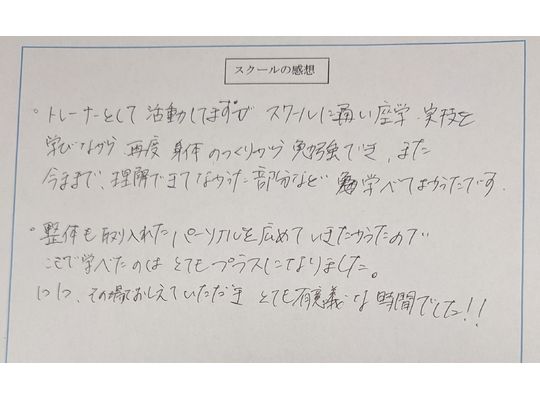 スクールの感想
。トレーナーとして活動してますが スクールに通い座学・実技を
学びながら 再度 身体のつくりから 勉強でき、また
今まで、理解できてなかった部分など 学べてよかったです.
。整体も取り入れたパーソナルを広めていきたかったので
ここで学べたのは とてもプラスになりました。
1つ1つ、その場でおしえていただき とても有意義な時間でした!!